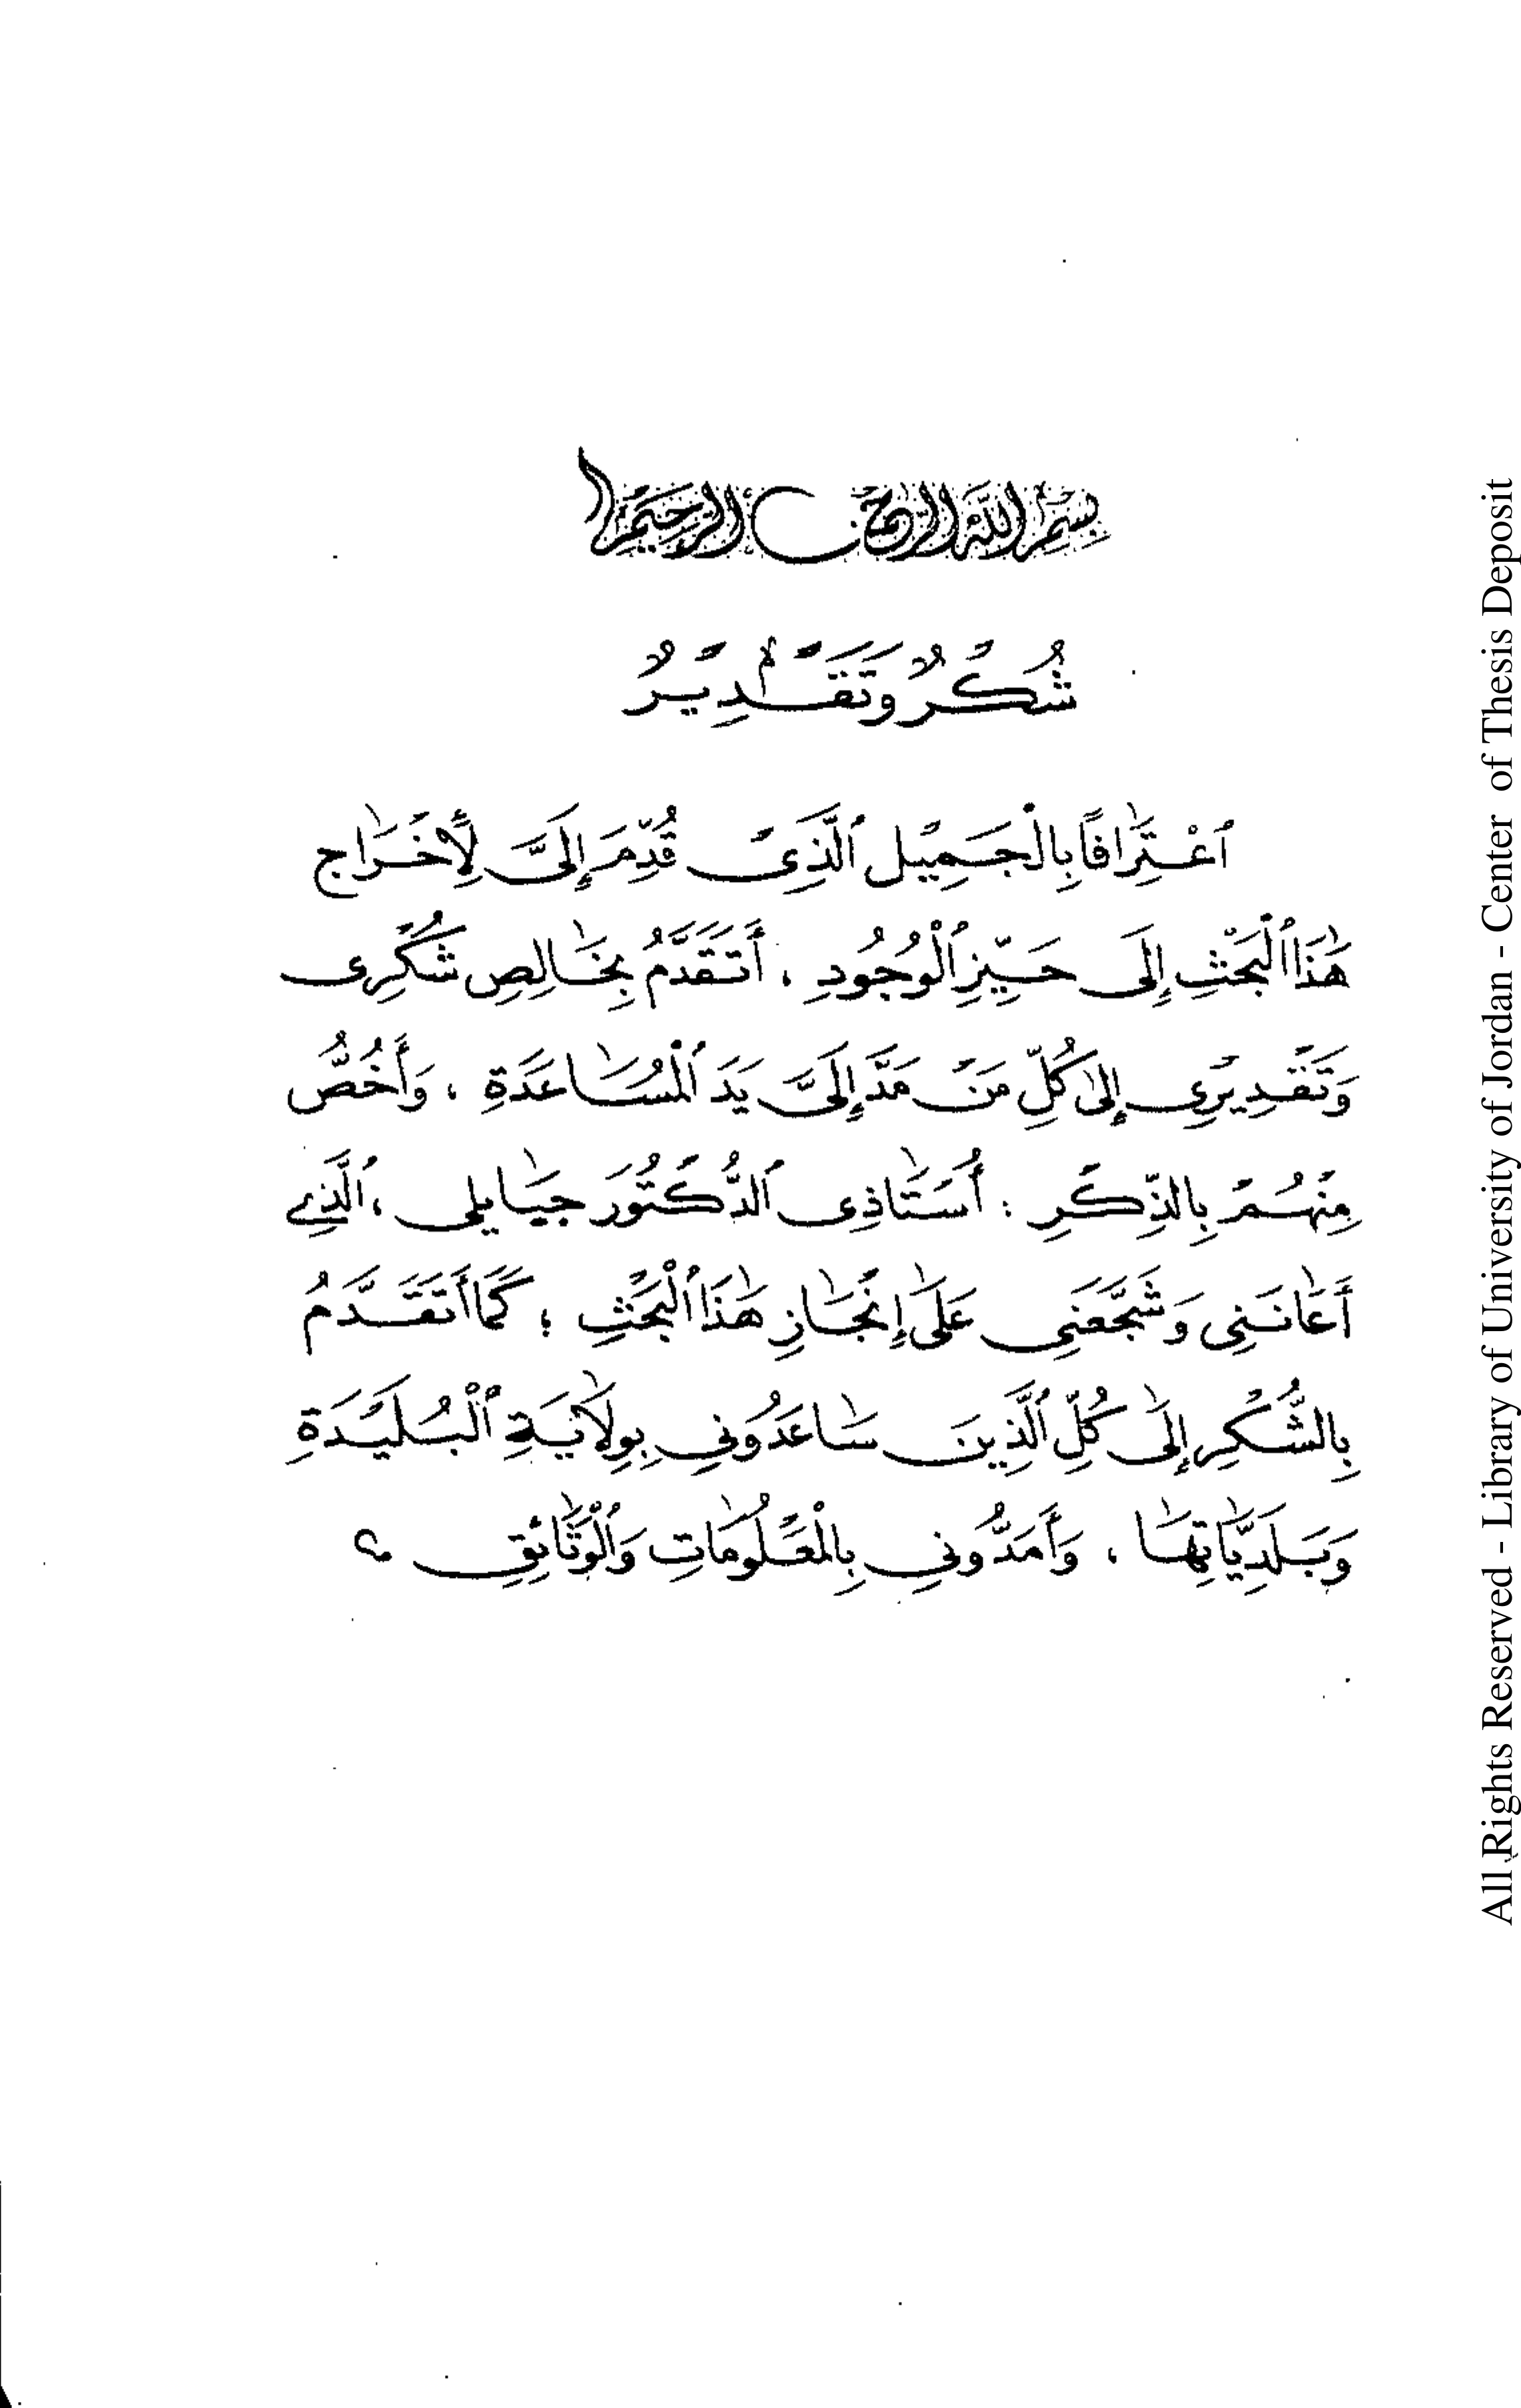 بِسْمِ اللَّهِ الرَّحْمَٰنِ الرَّحِيمِ
شُكْرٌ وَتَقْدِيرٌ
ٱعْتِرَافًا بِالْجَمِيْلِ ٱلَّذِىْ قُدِّمَ إِلَىَّ لِأَخْرَاج
هَٰذَا ٱلْبَحْثِ إِلَى حَيِّزِ ٱلْوُجُودِ ، أَتَقَدَّمُ بِخَالِصِ شُكْرِى
وَتَقْدِيرِى إِلَىٰ كُلِّ مَنْ مَدَّ إِلَىَّ يَدَ ٱلْمُسَاعَدَةِ ، وَأَخُصُّ
مِنْهُمْ بِالذِّكْرِ : أُسْتَاذِى ٱلدُّكْتُورَ جيَايلى ، ٱلَّذِي
أَعَانَنِى وَشَجَّعَنِى عَلَىٰ إِنْجَازِ هَٰذَا ٱلْبَحْثِ ؛ كَمَا أَتَقَدَّمُ
بِالشُّكْرِ إِلَىٰ كُلِّ ٱلَّذِينَ سَاعَدُونِي بِوِلَايَةِ ٱلْبُلَيْدَةِ
وَبَلَدِيَّاتِهَا ، وَأَمَدُّونِي بِالْمَعْلُومَاتِ وَٱلْوَثَائِقِ
All Rights Reserved - Library of University of Jordan - Center of Thesis Deposit